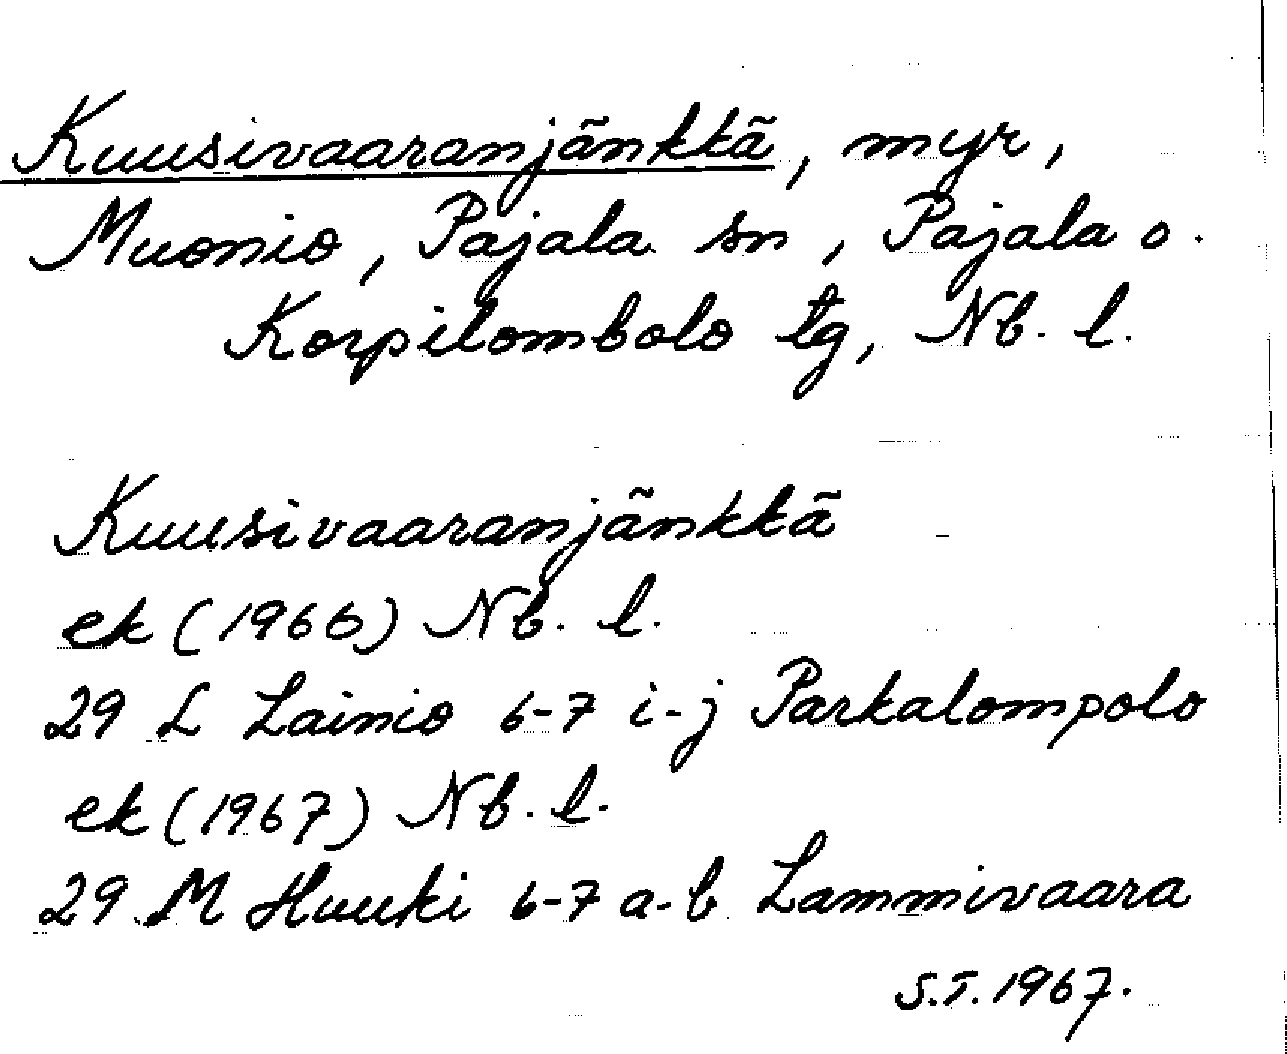 Kuusivaaranjänkkä, myr,
Muonio, Pajala sn, Pajala o.
Korpilombolo tg, Nb. l.
Kuusivaaranjänkkä
ek (1966) Nb. l.
29 L Lainio 6-7 i-j Parkalompolo
ek (1967) Nb. l.
29 M Huuki 6-7 a-b Lammivaara
S.T. 1967.